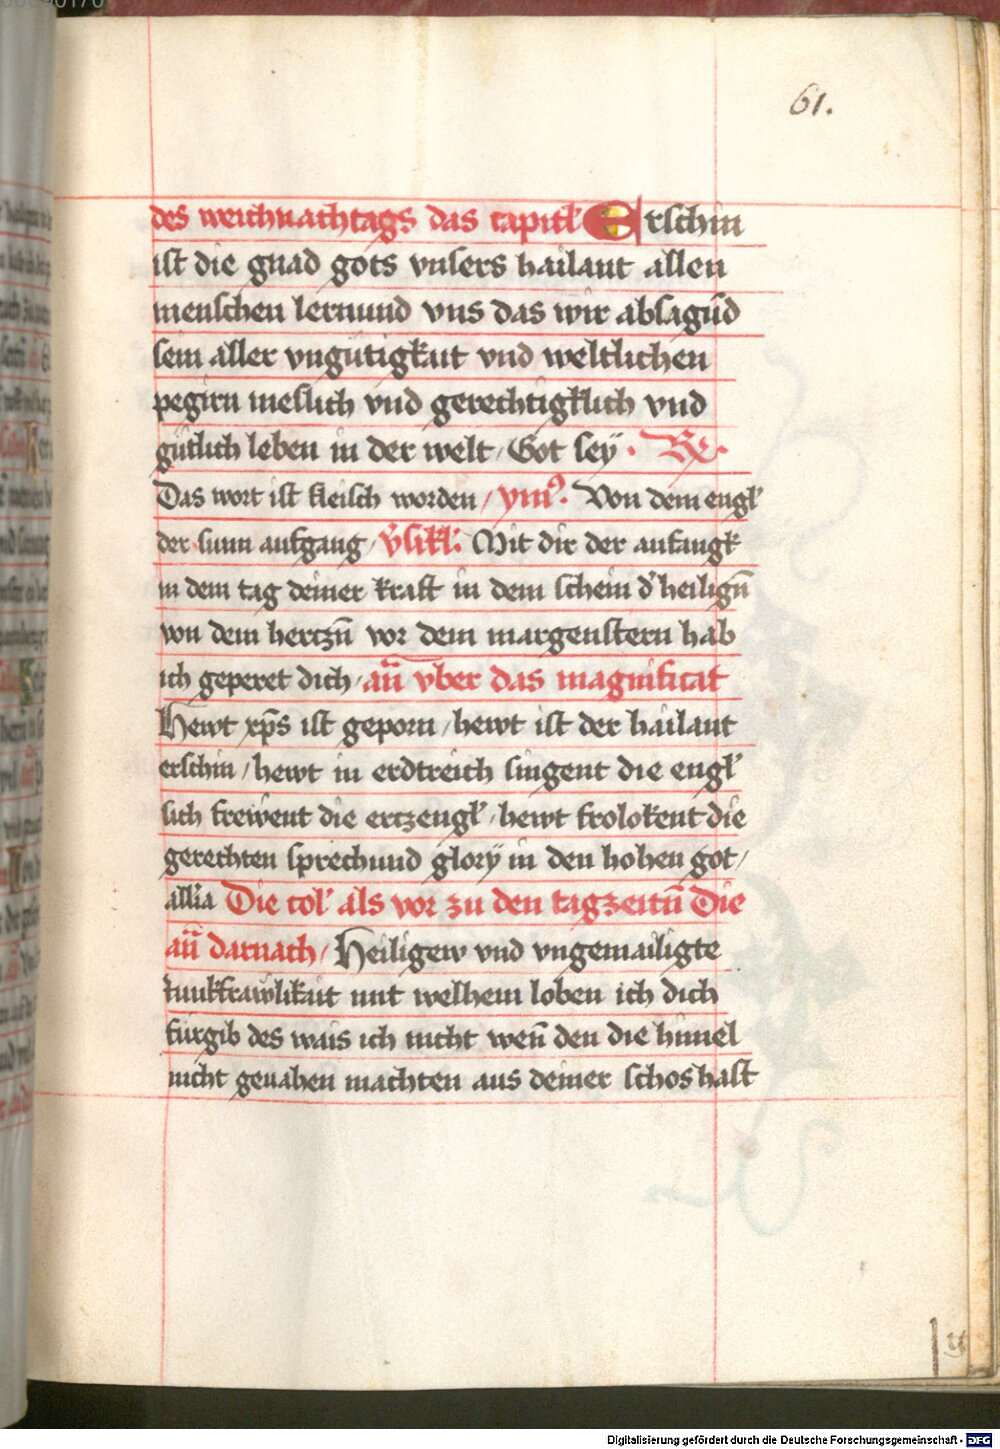 61.
des weichnachtags das capitl Erschin
ist die gnad gots vnsers hailant allen
menschen lernund vns das wir absagn̄d
sein aller vngütigkait vnd weltlichen
pegirn meslich vnd gerechtigklich vnd
gütlich leben in der welt / Got seÿ · Rx ·
Das wort ist fleisch worden / ym⁹. Von dem engl
der sunn aufgang / v̓sikl. Mit dir der anfangk
in dem tag deiner kraft in dem schein d̓ heilign̄
von dem herczn̄ vor dem margenstern hab
ich geperet dich / an̄ vber das magnificat
Hewt xp̄s ist geporn / hewt ist der hailant
erschin / hewt in erdtreich singent die engl
sich frewent die erczengl / hewt frolokent die
gerechten sprechund glorÿ in den hohen got /
all̓ia Die col̓ als vor zu den tagzeitn̄ Die
an̄ darnach / Heiligew vnd vngemailigte
iunkfrawlikait mit welhem loben ich dich
fürgib des wais ich nicht wen̄ den die himel
nicht genahen machten aus deiner schos hast